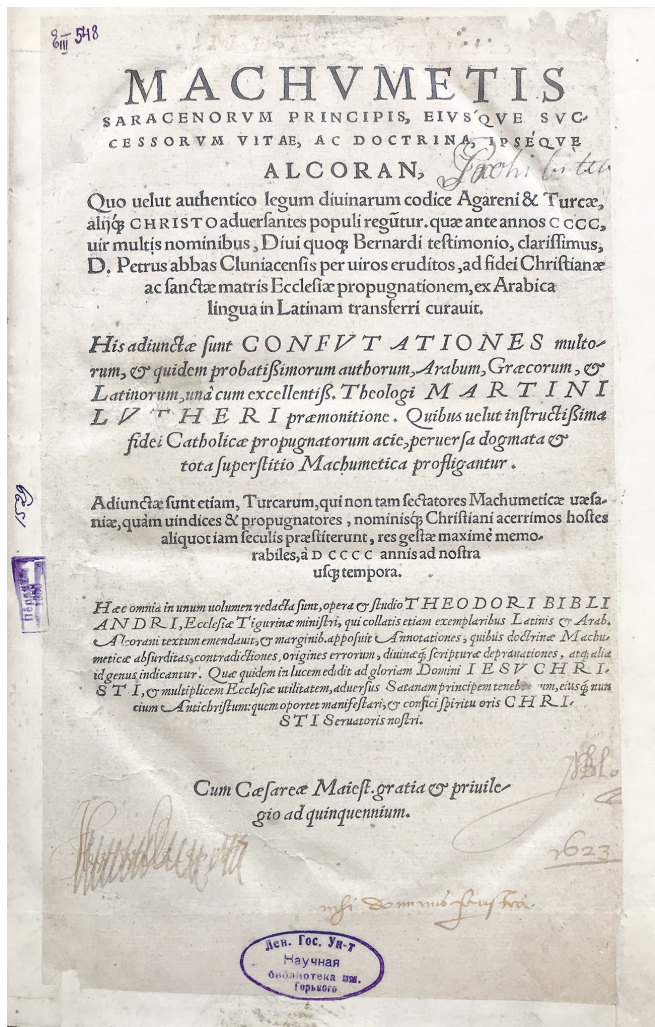 E III 548
MACHVMETIS
SARACENORVM PRINCIPIS, EIVSQVE SVC-
CESSORVM VITAE, AC DOCTRINA, IPSÉQVE
ALCORAN,
Prohibitus
Quo uelut authentico legum diuinarum codice Agareni & Turcæ,
alijq́ꝫ CHRISTO aduersantes populi regūtur. quæ ante annos CCCC,
uir multis nominibus, Diui quoqꝫ Bernardi testimonio, clarissimus,
D. Petrus abbas Cluniacensis per uiros eruditos, ad fidei Christianæ
ac sanctæ matris Ecclesiæ propugnationem, ex Arabica
lingua in Latinam transferri curauit.
His adiunctæ sunt CONFVTATIONES multo-
rum, & quidem probatißimorum authorum, Arabum, Græcorum, &
Latinorum, unà cum excellentiß. Theologi MARTINI
LVTHERI præmonitione. Quibus uelut instructißima
fidei Catholicæ propugnatorum acie, peruersa dogmata &
tota superstitio Machumetica profligantur.
Adiunctæ sunt etiam, Turcarum, qui non tam sectatores Machumeticæ uæsa-
niæ, quàm uindices & propugnatores, nominisq́ꝫ Christiani acerrimos hostes
aliquot iam seculis præstiterunt, res gestæ maximè memo-
rabiles, à DCCCC annis ad nostra
usqꝫ tempora.
Hæc omnia in unum uolumen redacta sunt, opera & studio THEODORI BIBLI
ANDRI, Ecclesiæ Tigurinæ ministri, qui collatis etiam exemplaribus Latinis & Arab.
Alcorani textum emendauit, & marginib. apposuit Annotationes, quibus doctrinæ Machu-
meticæ absurditas, contradictiones, origines errorum, diuinæq́ꝫ scripturæ deprauationes, atqꝫ alia
id genus indicantur. Quæ quidem in lucem edidit ad gloriam Domini IESV CHRI-
STI, & multiplicem Ecclesiæ utilitatem, aduersus Satanam principem teneb um, eiusq́ꝫ nun
cium Antichristum: quem oportet manifestari, & confici spiritu oris CHRI-
STI Seruatoris nostri.
Cum Cæsareæ Maiest. gratia & priuile-
gio ad quinquennium.
1623
Лен. Гос. Ун-т
Научная
библиотека им.
Горького